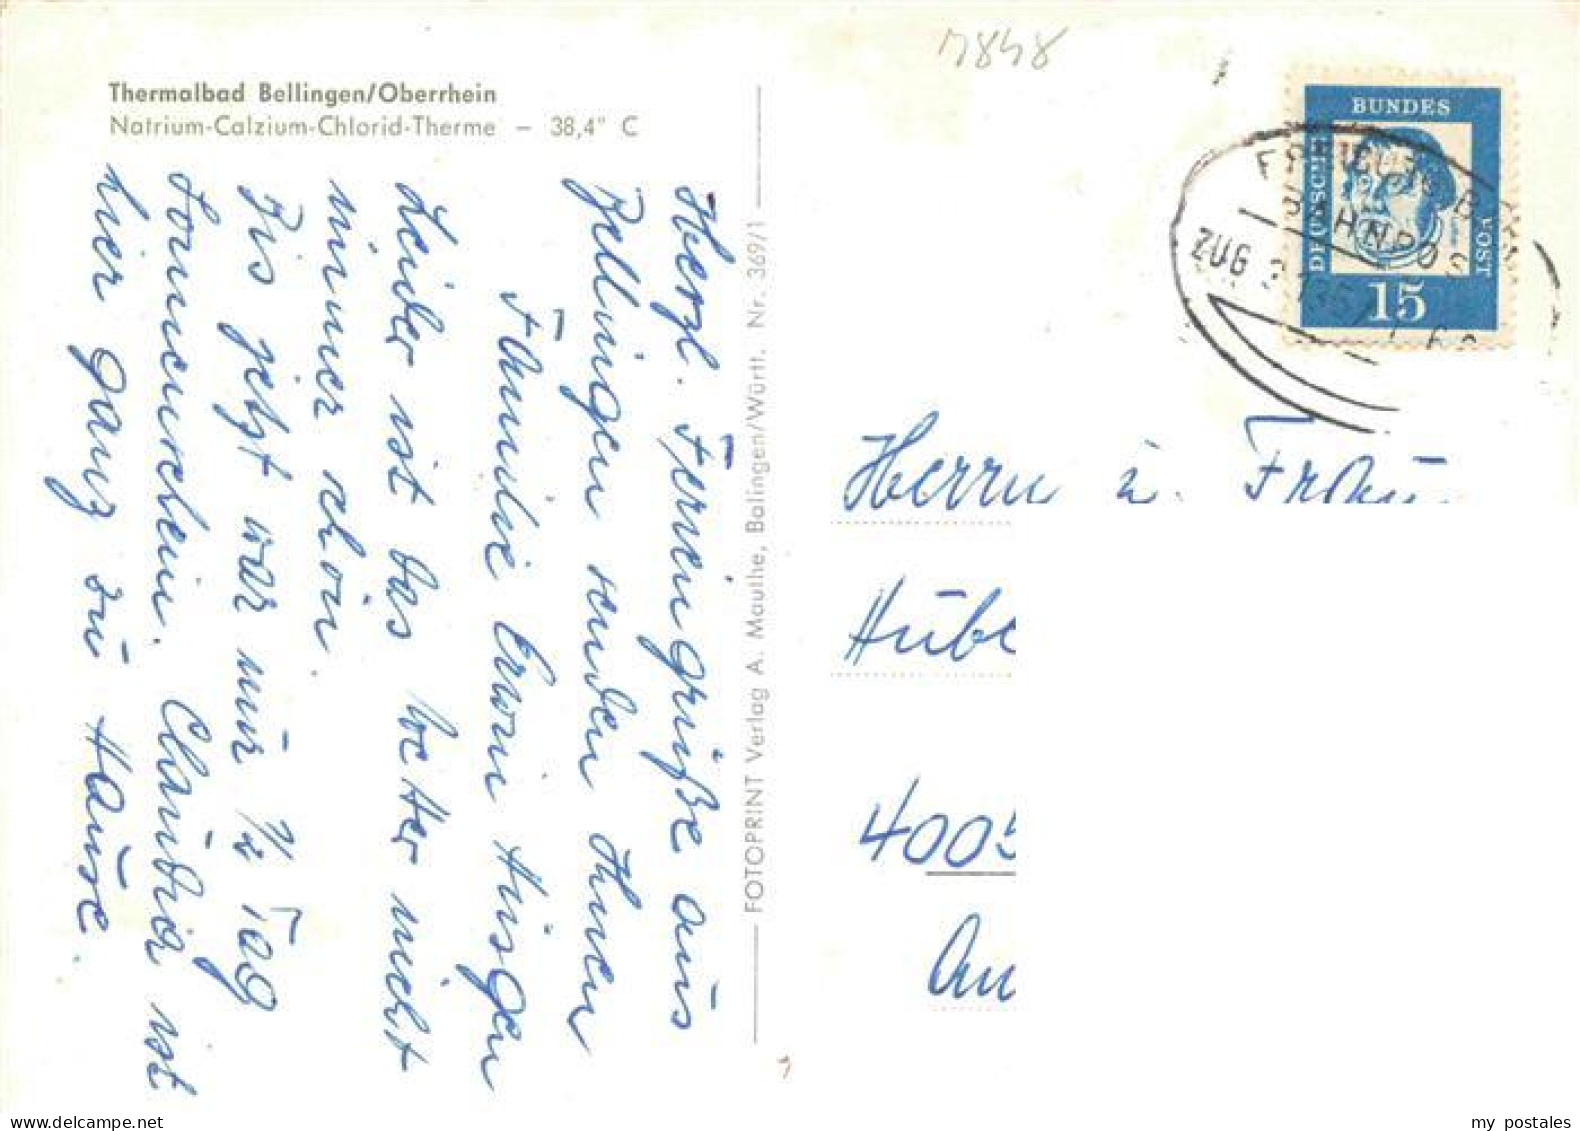 Thermalbad Bellingen/Oberrhein
Natrium-Calzium-Chlorid-Therme – 38,4° C
Herzl. Feriengrüße aus
Bellingen senden Ihnen
Familie Erwin Hüsgen
Leider ist das Wetter nicht
immer schön.
Bis jetzt war nur ½ Tag
Sonnenschein. Claudia ist
hier ganz zu Hause.
FOTOPRINT Verlag A. Mauthe, Balingen/Württ. Nr. 369/1
DEUTSCHE
BUNDES
POST
15
BAHNPOST
ZUG
Herrn u. Frau
Hübe
4005
An
my postales